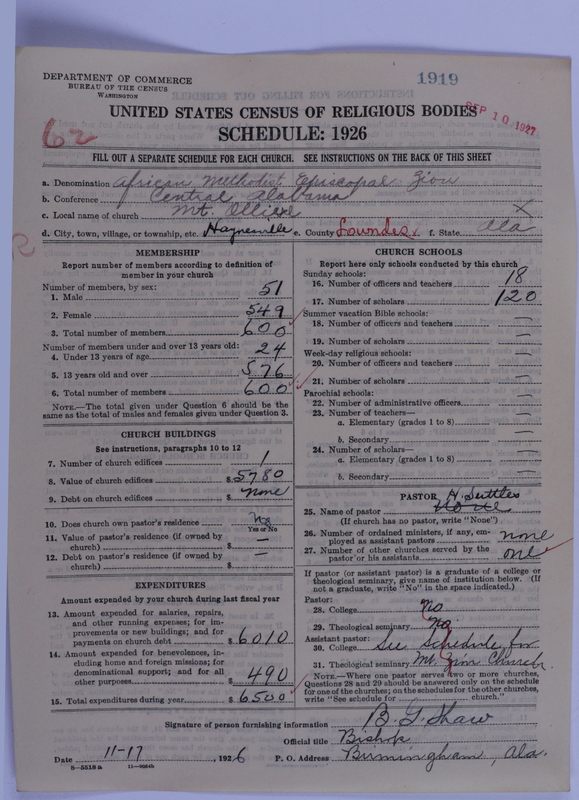 DEPARTMENT OF COMMERCE
BUREAU OF THE CENSUS
WASHINGTON
1919
SEP 10 1927
UNITED STATES CENSUS OF RELIGIOUS BODIES
SCHEDULE: 1926
62
FILL OUT A SEPARATE SCHEDULE FOR EACH CHURCH. SEE INSTRUCTIONS ON THE BACK OF THIS SHEET
a. Denomination African Methodist Episcopal Zion
b. Conference Central Alabama
c. Local name of church Mt.
d. City, town, village, or township, etc. Hayneville e. County Lowndes f. State Ala
MEMBERSHIP
Report number of members according to definition of member in your church
Number of members, by sex:
1. Male 51
2. Female 549
3. Total number of members 600
Number of members under and over 13 years old:
4. Under 13 years of age 24
5. 13 years old and over 576
6. Total number of members 600
NOTE.—The total given under Question 6 should be the
same as the total of males and females given under Question 3.
CHURCH BUILDINGS
See instructions, paragraphs 10 to 12
7. Number of church edifices 1
8. Value of church edifices $ 5780
9. Debt on church edifices $ none
10. Does church own pastor's residence No
Yes or No
11. Value of pastor's residence (if owned by
church) $ —
12. Debt on pastor's residence (if owned by
church) $ —
EXPENDITURES
Amount expended by your church during last fiscal year
13. Amount expended for salaries, repairs,
and other running expenses; for im-
provements or new buildings; and for
payments on church debt $ 6010
14. Amount expended for benevolences, in-
cluding home and foreign missions; for
denominational support; and for all
other purposes $ 490
15. Total expenditures during year $ 6500
CHURCH SCHOOLS
Report here only schools conducted by this church
Sunday schools:
16. Number of officers and teachers 18
17. Number of scholars 120
Summer vacation Bible schools:
18. Number of officers and teachers —
19. Number of scholars —
Week-day religious schools:
20. Number of officers and teachers —
21. Number of scholars —
Parochial schools:
22. Number of administrative officers —
23. Number of teachers—
a. Elementary (grades 1 to 8) —
b. Secondary —
24. Number of scholars—
a. Elementary (grades 1 to 8) —
b. Secondary —
PASTOR
H. Suttles
25. Name of pastor None
(If church has no pastor, write "None")
26. Number of ordained ministers, if any, em-
ployed as assistant pastors none
27. Number of other churches served by the
pastor or his assistants one
If pastor (or assistant pastor) is a graduate of a college or
theological seminary, give name of institution below. (If
not a graduate, write "No" in the space indicated.)
Pastor:
28. College No
29. Theological seminary No
Assistant pastor:
30. College See Schedule for
31. Theological seminary Mt. Zion Church
NOTE.—Where one pastor serves two or more churches,
Questions 28 and 29 should be answered only on the schedule
for one of the churches; on the schedules for the other churches,
write "See schedule for church."
Signature of person furnishing information B. G. Shaw
Official title Bishop
Date 11-17, 1926 P. O. Address Birmingham, Ala.
8—5518a 11—9024b